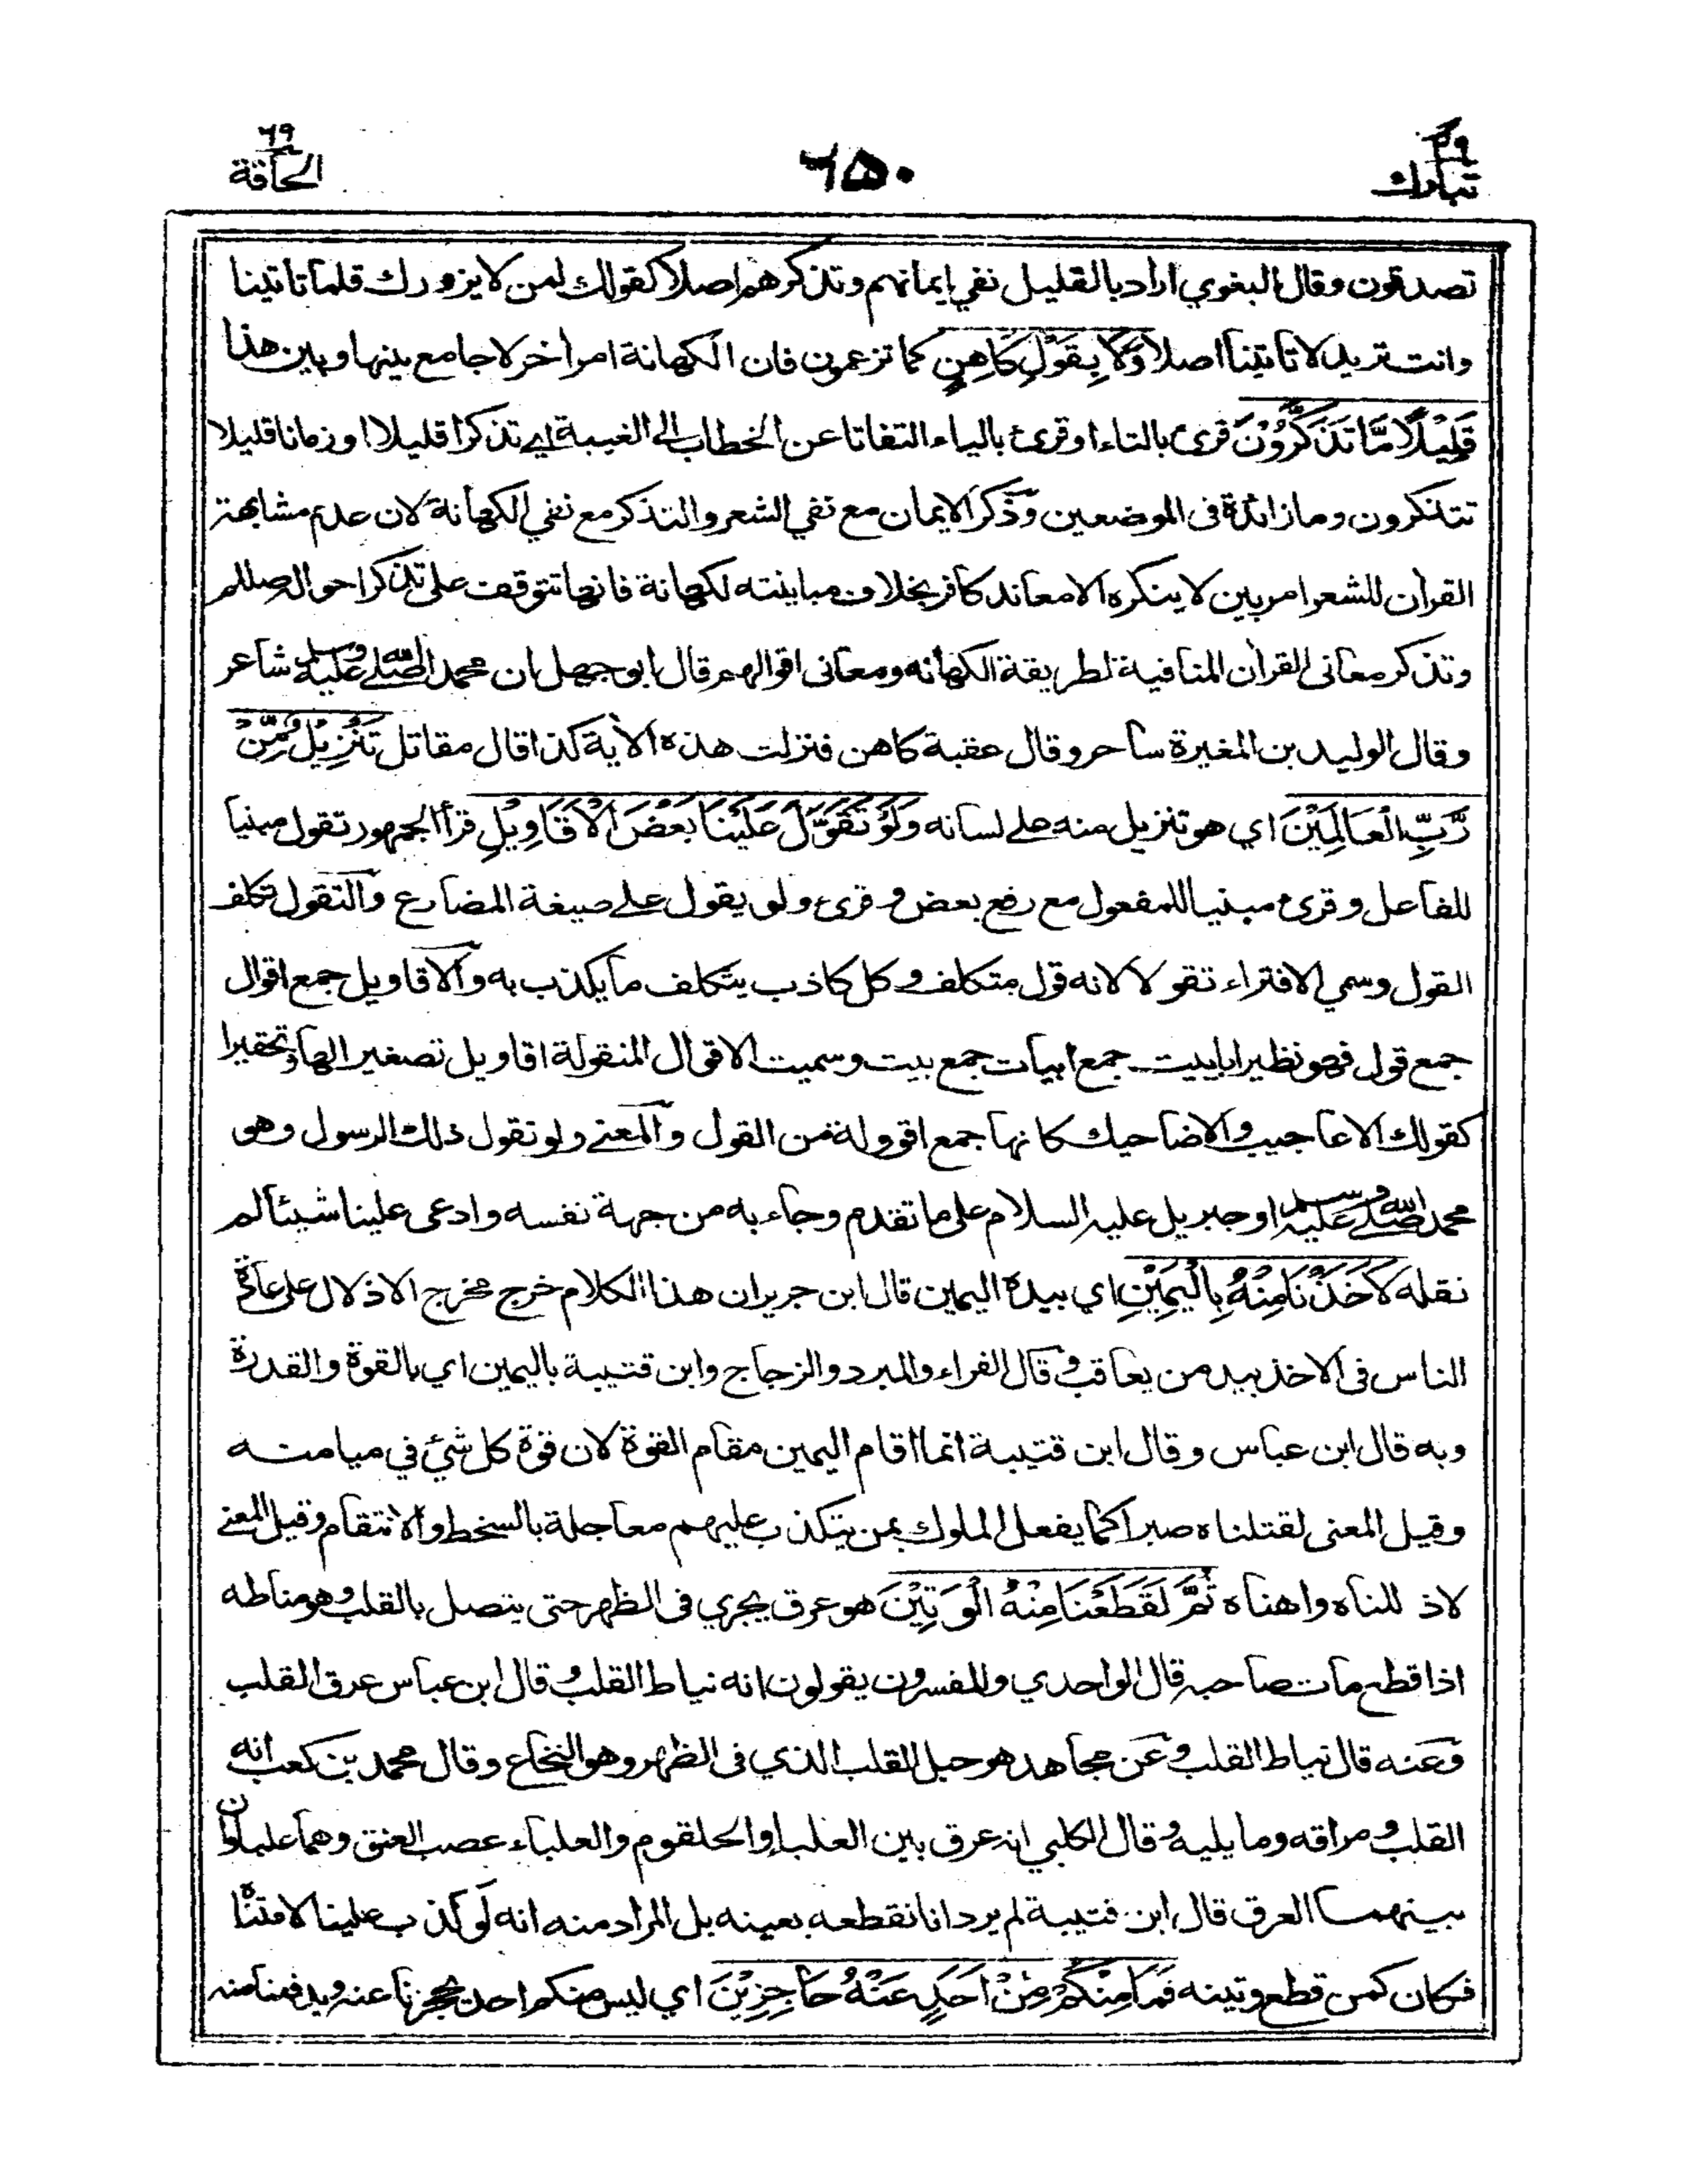 ٢٩ تبارك
٦٥٠
٦٩ الحاقة
تصدقون وقال البغوي اراد بالقليل نفي ايمانهم وتذكرهم اصلا كقولك لمن لا يزورك قلما تاتينا
وانت تريد لا تاتينا اصلا وَلَا بِقَوْلِ كَاهِنٍ كما تزعمون فان الكهانة امر اخر لا جامع بينها وبين هذا
قَلِيْلًا مَّا تَذَكَّرُوْنَ قرئ بالتاء وقرئ بالياء التفاتا عن الخطاب الى الغيبة اي تذكرا قليلا او زمانا قليلا
تتذكرون وما زائدة فى الموضعين وذكر الايمان مع نفي الشعر والتذكر مع نفي الكهانة لان عدم مشابهة
القرآن للشعر امر بين لا ينكره الا معاند كافر بخلاف مباينته لكهانة فانها تتوقف على تذكر احواله صللم
وتذكر معانى القرآن المنافية لطريقة الكهانه ومعانى اقوالهم قال ابو جهل ان محمدا صلى الله عليه وسلم شاعر
وقال الوليد بن المغيرة ساحر وقال عقبة كاهن فنزلت هذه الآية كذا قال مقاتل تَنْزِيْلٌ مِّنْ
رَّبِّ الْعَالَمِيْنَ اي هو تنزيل منه على لسانه وَلَوْ تَقَوَّلَ عَلَيْنَا بَعْضَ الْاَقَاوِيْلِ قرأ الجمهور تقول مبنيا
للفاعل وقرئ مبنيا للمفعول مع رفع بعض وقرئ ولو يقول على صيغة المضارع والتقول تكلف
القول وسمي الافتراء تقولا لانه قول متكلف وكل كاذب يتكلف ما يكذب به والاقاويل جمع اقوال
جمع قول فهو نظير ابابيت جمع ابيات جمع بيت وسميت الاقوال المنقولة اقاويل تصغيرا لها وتحقيرا
كقولك الاعاجيب والاضاحيك كانها جمع اقوولة من القول والمعنى ولو تقول ذلك الرسول وهو
محمد صلى الله عليه وسلم او جبريل عليه السلام على ما تقدم وجاء به من جهة نفسه وادعى علينا شيئا لم
نقله لَاَخَذْنَا مِنْهُ بِالْيَمِيْنِ اي بيده اليمين قال ابن جرير ان هذا الكلام خرج مخرج الاذلال على عادة
الناس فى الاخذ بيد من يعاقب وقال الفراء والمبرد والزجاج وابن قتيبة باليمين اي بالقوة والقدرة
وبه قال ابن عباس وقال ابن قتيبة انما اقام اليمين مقام القوة لان قوة كل شيئ في ميامنه
وقيل المعنى لقتلناه صبرا كما يفعل الملوك بمن يتكذب عليهم معاجلة بالسخط والانتقام وقيل المعنى
لاذللناه واهناه ثُمَّ لَقَطَعْنَا مِنْهُ الْوَتِيْنَ هو عرق يجري فى الظهر حتى يتصل بالقلب وهو مناطه
اذا قطع مات صاحبه قال الواحدي والمفسرون يقولون انه نياط القلب وقال ابن عباس عرق القلب
وعنه قال نياط القلب وعن مجاهد هو حبل القلب الذي فى الظهر وهو النخاع وقال محمد بن كعب انه
القلب ومراقه وما يليه وقال الكلبي انه عرق بين العلباء والحلقوم والعلباء عصب العنق وهما علباوان
بينهما العرق قال ابن قتيبة لم يرد انا نقطعه بعينه بل المراد منه انه لو كذب علينا لامتناه
فكان كمن قطع وتينه فَمَا مِنْكُمْ مِّنْ اَحَدٍ عَنْهُ حَاجِزِيْنَ اي ليس منكم احد يحجزنا عنه ويدفعنا منه